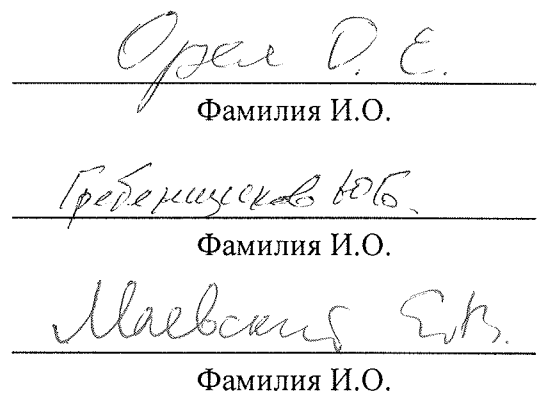 Орел О. Е.
Фамилия И.О.
Гребенщиков Ю.Б.
Фамилия И.О.
Маевский Е.В.
Фамилия И.О.